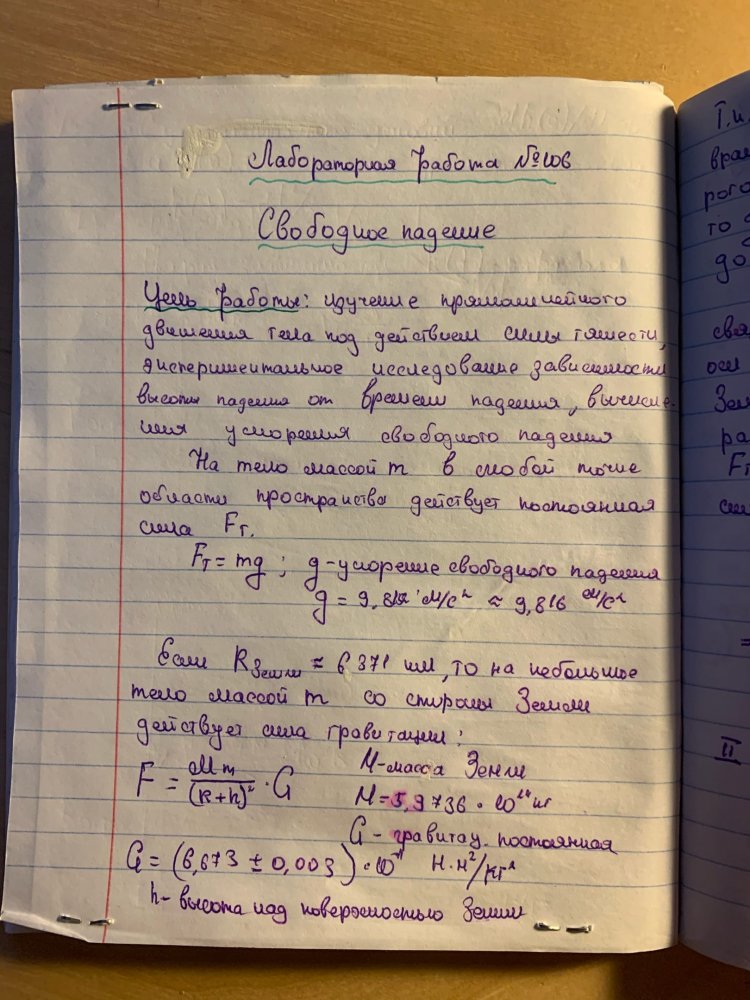 Лабораторная работа №106
Свободное падение
Цель работы: изучение прямолинейного
движения тела под действием силы тяжести,
экспериментальное исследование зависимости
высоты падения от времени падения, вычисле-
ния ускорения свободного падения
На тело массой m в любой точке
области пространства действует постоянная
сила Fт.
Fт = mg ; g - ускорение свободного падения
g = м/с² ≈ 9,816 м/с²
Если RЗемли ≈ 6371 км, то на небольшое
тело массой m со стороны Земли
действует сила гравитации:
F = Mm/(R+h)² · G
M - масса Земли
M = 5,9736 · 10²⁴ кг
G - гравитац. постоянная
G = (6,673 ± 0,003) · 10⁻¹¹ Н·м²/кг²
h - высота над поверхностью Земли
Т.и
вращ
рого
то
доб
свя
оси
Зем
ра
Fт
сил
=
II